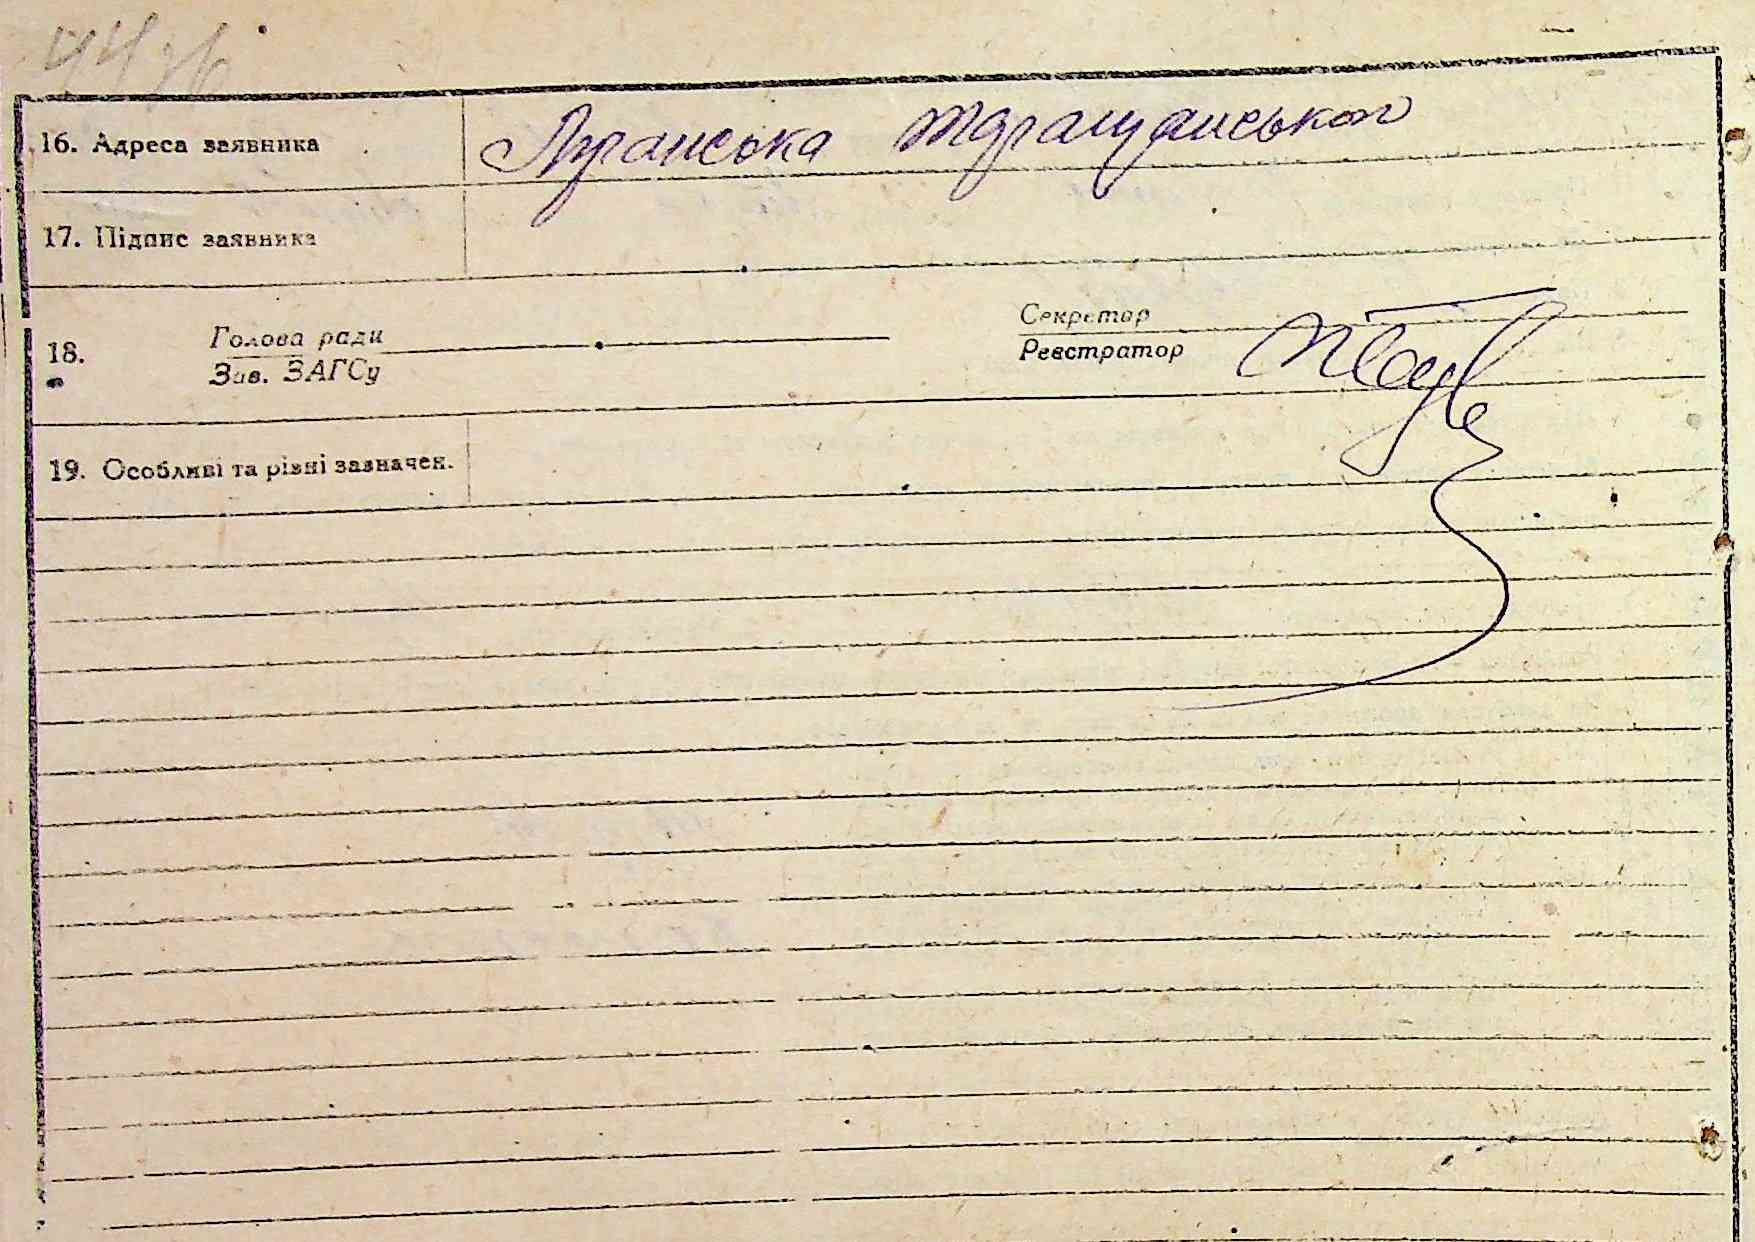 16. Адреса заявника Луганська
17. Підпис заявника
18. Голова ради
Зав. ЗАГСу
Секретар
Реєстратор
19. Особливі та різні зазначен.